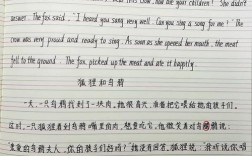 how are your children? She didn't
answer. The fox said, "I heard you sang very well. Can you sing a song for me?" The
crow was very proud and ready to sing. As soon as she opened her mouth, the meat
fell to the ground. The fox picked up the meat and ate it happily.
狐狸和乌鸦
一天,一只乌鸦找到了一块肉,她很高兴,准备把它喂给她的孩子们。
这时,一只狐狸看到乌鸦嘴里的肉,想要吃它,他微笑着对乌鸦说:
亲爱的乌鸦夫人,你的孩子们好吗?"她没有回答,狐狸说:"我听说你唱